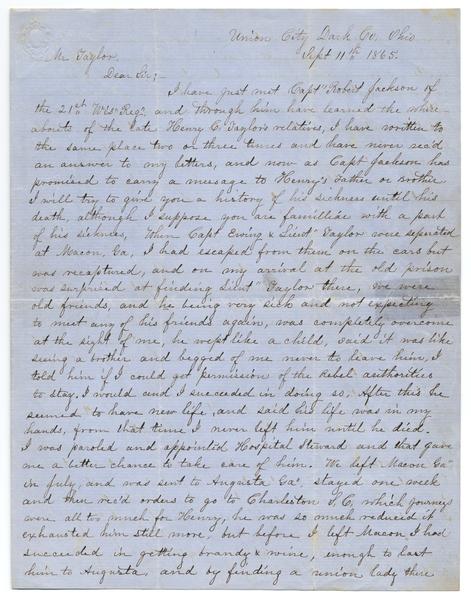 Union City Dark Co. Ohio
Sept 11th 1865.
Mr Taylor.
Dear Sir;
I have just met Capt" Robert Jackson of
the 21st Wis" Reg", and through him have learned the where
abouts of the late Henry C. Taylor's relatives, I have written to
the same place two or three times and have never rec'd
an answer to my letters, and now as Capt Jackson has
promised to carry a message to Henry's Father or Brother
I will try to give you a history of his sickness until his
death, although I suppose you are famillike with a part
of his sickness, When Capt Ewing & Lieut" Taylor were seperated
at Macon, Ga, I had escaped from them on the cars but
was recaptured, and on my arrival at the old prison
was surprised at finding Lieut" Taylor there, we were
old friends, and he being very sick and not expecting
to meet any of his friends again, was completely overcome
at the sight of me, he wept like a child, said it was like
seeing a brother and begged of me never to leave him, I
told him if I could get permission of the Rebel authorities
to stay. I would and I succeeded in doing so, After this he
seemed to have new life, and said his life was in my
hands, from that time I never left him until he died.
I was paroled and appointed Hospital Steward and that gave
me a better chance to take care of him. We left Macon Ga
in July, and was sent to Augusta Ga, stayed one week
and then rec'd orders to go to Charleston S, C, which journeys
were all too much for Henry, he was so much reduced it
exhausted him still more, but before I left Macon I had
succeeded in getting brandy & wine, enough to last
him to Augusta, and by finding a union lady there